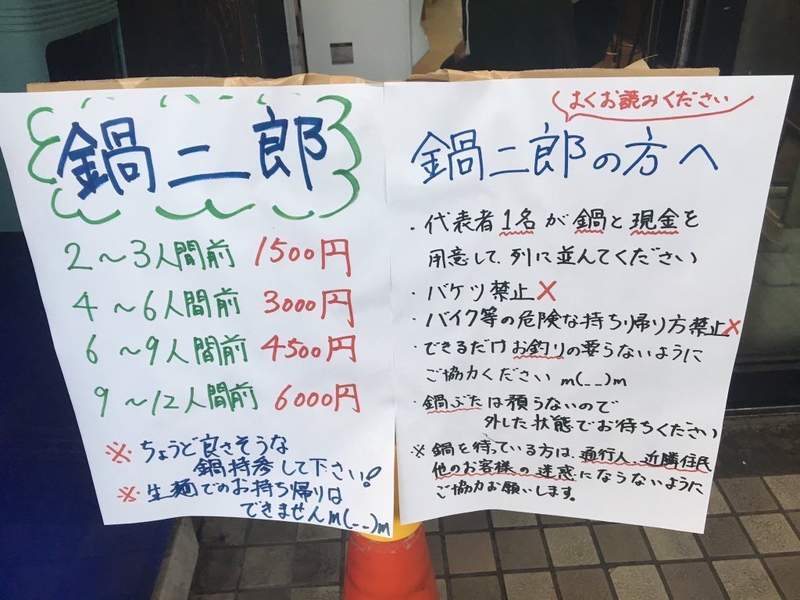 鍋二郎
2〜3人間前 1500円
4〜6人間前 3000円
6〜9人間前 4500円
9〜12人間前 6000円
※ちょうど良さそうな
鍋持参して下さい!
※生麺でのお持ち帰りは
できませんm(__)m
よくお読みください
鍋二郎の方へ
・代表者1名が鍋と現金を
用意して、列に並んでください
・バケツ禁止×
・バイク等の危険な持ち帰り方禁止×
・できるだけお釣りの要らないように
ご協力ください m(__)m
・鍋ぶたは預うないので
外した状態でお待ちください
※鍋を待っている方は、通行人、近隣住民
他のお客様の迷惑にならないように
ご協力お願いします。